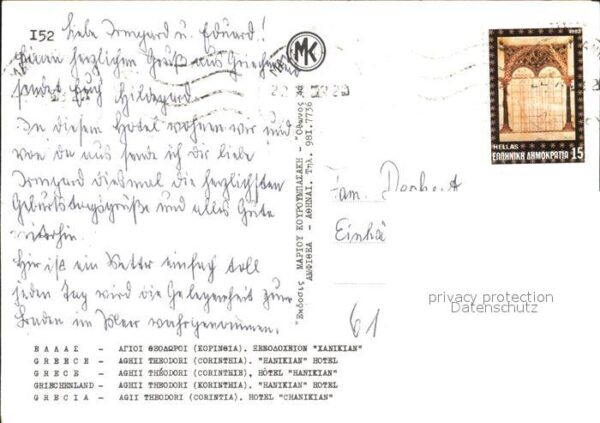 I52
Liebe Irmgard u. Eduard!
Einen herzlichen Gruß aus Griechenland
sendet Euch Hildegard
In diesem Hotel wohnen wir und
von da aus sende ich dir liebe
Irmgard diesmal die herzlichsten
Geburtstagsgrüße und alles Gute
weiterhin.
Hier ist ein Wetter einfach toll
jeden Tag wird die Gelegenheit zum
Baden im Meer wahrgenommen.
MK
"Εκδοσις ΜΑΡΙΟΥ ΚΟΥΡΟΥΜΠΑΚΗ - "Οθωνος
ΑΜΦΙΘΕΑ - ΑΘΗΝΑΙ. Τηλ. 981.7736
HELLAS
ΕΛΛΗΝΙΚΗ ΔΗΜΟΚΡΑΤΙΑ 15
Fam.
61
privacy protection
Datenschutz
ΕΛΛΑΣ - ΑΓΙΟΙ ΘΕΟΔΩΡΟΙ (ΚΟΡΙΝΘΙΑ). ΞΕΝΟΔΟΧΕΙΟΝ "ΧΑΝΙΚΙΑΝ"
GREECE - AGHII THEODORI (CORINTHIA). "HANIKIAN" HOTEL
GRECE - AGHII THÉODORI (CORINTHIE), HÔTEL "HANIKIAN"
GRIECHENLAND - AGHII THEODORI (KORINTHIA). "HANIKIAN" HOTEL
GRECIA - AGII THEODORI (CORINTIA). HOTEL "CHANIKIAN"